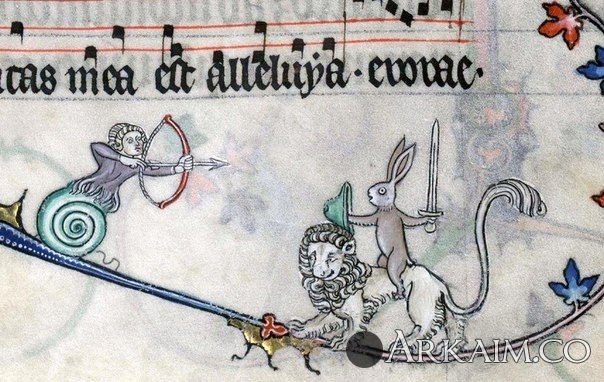 tas mea est alleluya · evovae ·
ARKAIM.CO